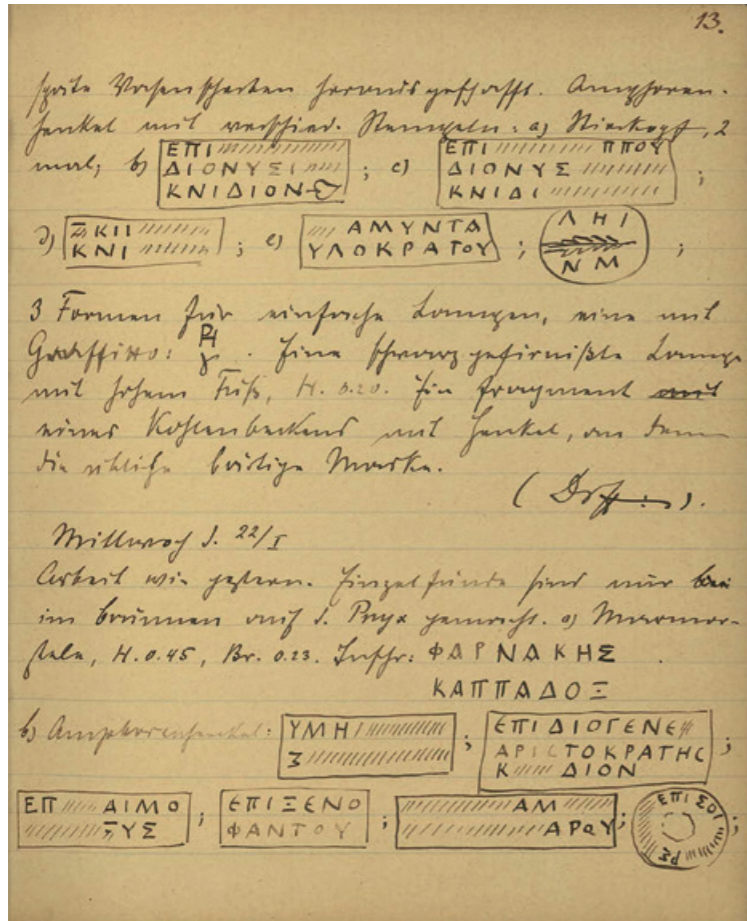 13.
späte Vasenscherben herausgeschafft. Amphoren-
henkel mit verschied. Stempeln: a) Stierkopf, 2
mal; b) ΕΠΙ ; c) ΕΠΙ ΠΠΟΥ ;
ΔΙΟΝΥΣΙ ΔΙΟΝΥΣ
ΚΝΙΔΙΟΝ ΚΝΙΔΙ
d) ΞΚΙΙ ; e) ΑΜΥΝΤΑ ; ΛΗΙ ;
ΚΝΙ ΥΛΟΚΡΑΤΟΥ ΝΜ
3 Formen für einfache Lampen, eine mit
Graffitto: . Eine schwarz gefirnißte Lampe
mit hohem Fuß, H. 0.20. Ein Fragment mit
eines Kohlenbeckens mit Henkel, an dem
die übliche bärtige Maske.
Mittwoch d. 22/I
Arbeit wie gestern. Einzelfunde sind nur bei
im Brunnen auf d. Pnyx gemacht. a) Marmor-
stele, H. 0.45, Br. 0.23. Inschr: ΦΑΡΝΑΚΗΣ
ΚΑΠΠΑΔΟΞ
b) Amphorenhenkel: ΥΜΗΙ ; ΕΠΙΔΙΟΓΕΝΕ ;
Σ ΑΡΙΣΤΟΚΡΑΤΗC
Κ ΔΙΟΝ
ΕΠ ΑΙΜΟ ; ΕΠΙΞΕΝΟ ; ΑΜ ; ΕΠΙ ΣΟΙ ;
ΞΥΣ ΦΑΝΤΟΥ ΑΡΩΥ ΡΣ